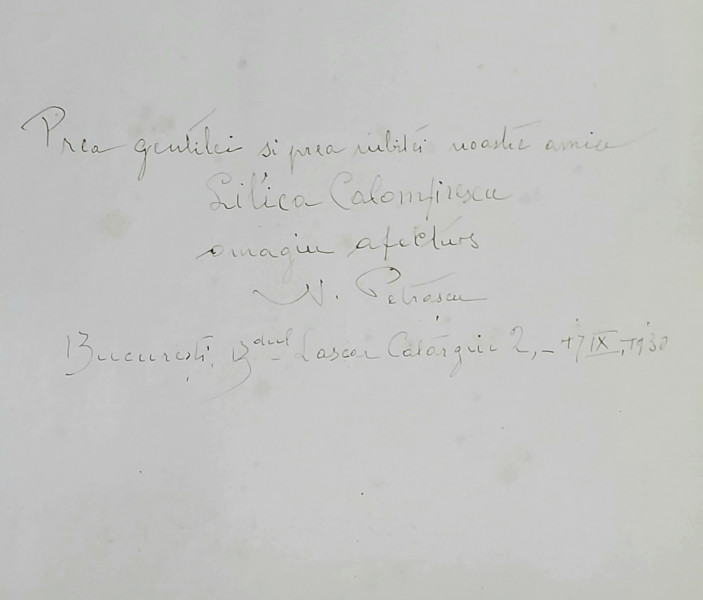 Prea gentilei si prea iubitei noastre amice
Lilica Calompirescu
omagiu afectuos
N. Petrascu
Bucuresti, Bdul Lascar Catargiu 2, – 17 IX, 1930